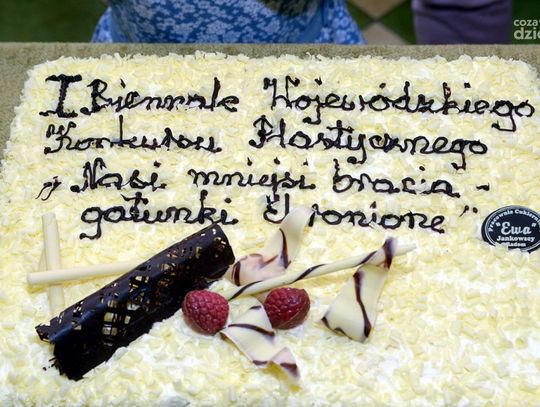 cozad
dzie
I Biennale Wojewódzkiego
Konkursu Plastycznego
„Nasi mniejsi bracia -
gatunki chronione"
Pracownia Cukiernicza
Ewa
Jankowscy
Radom